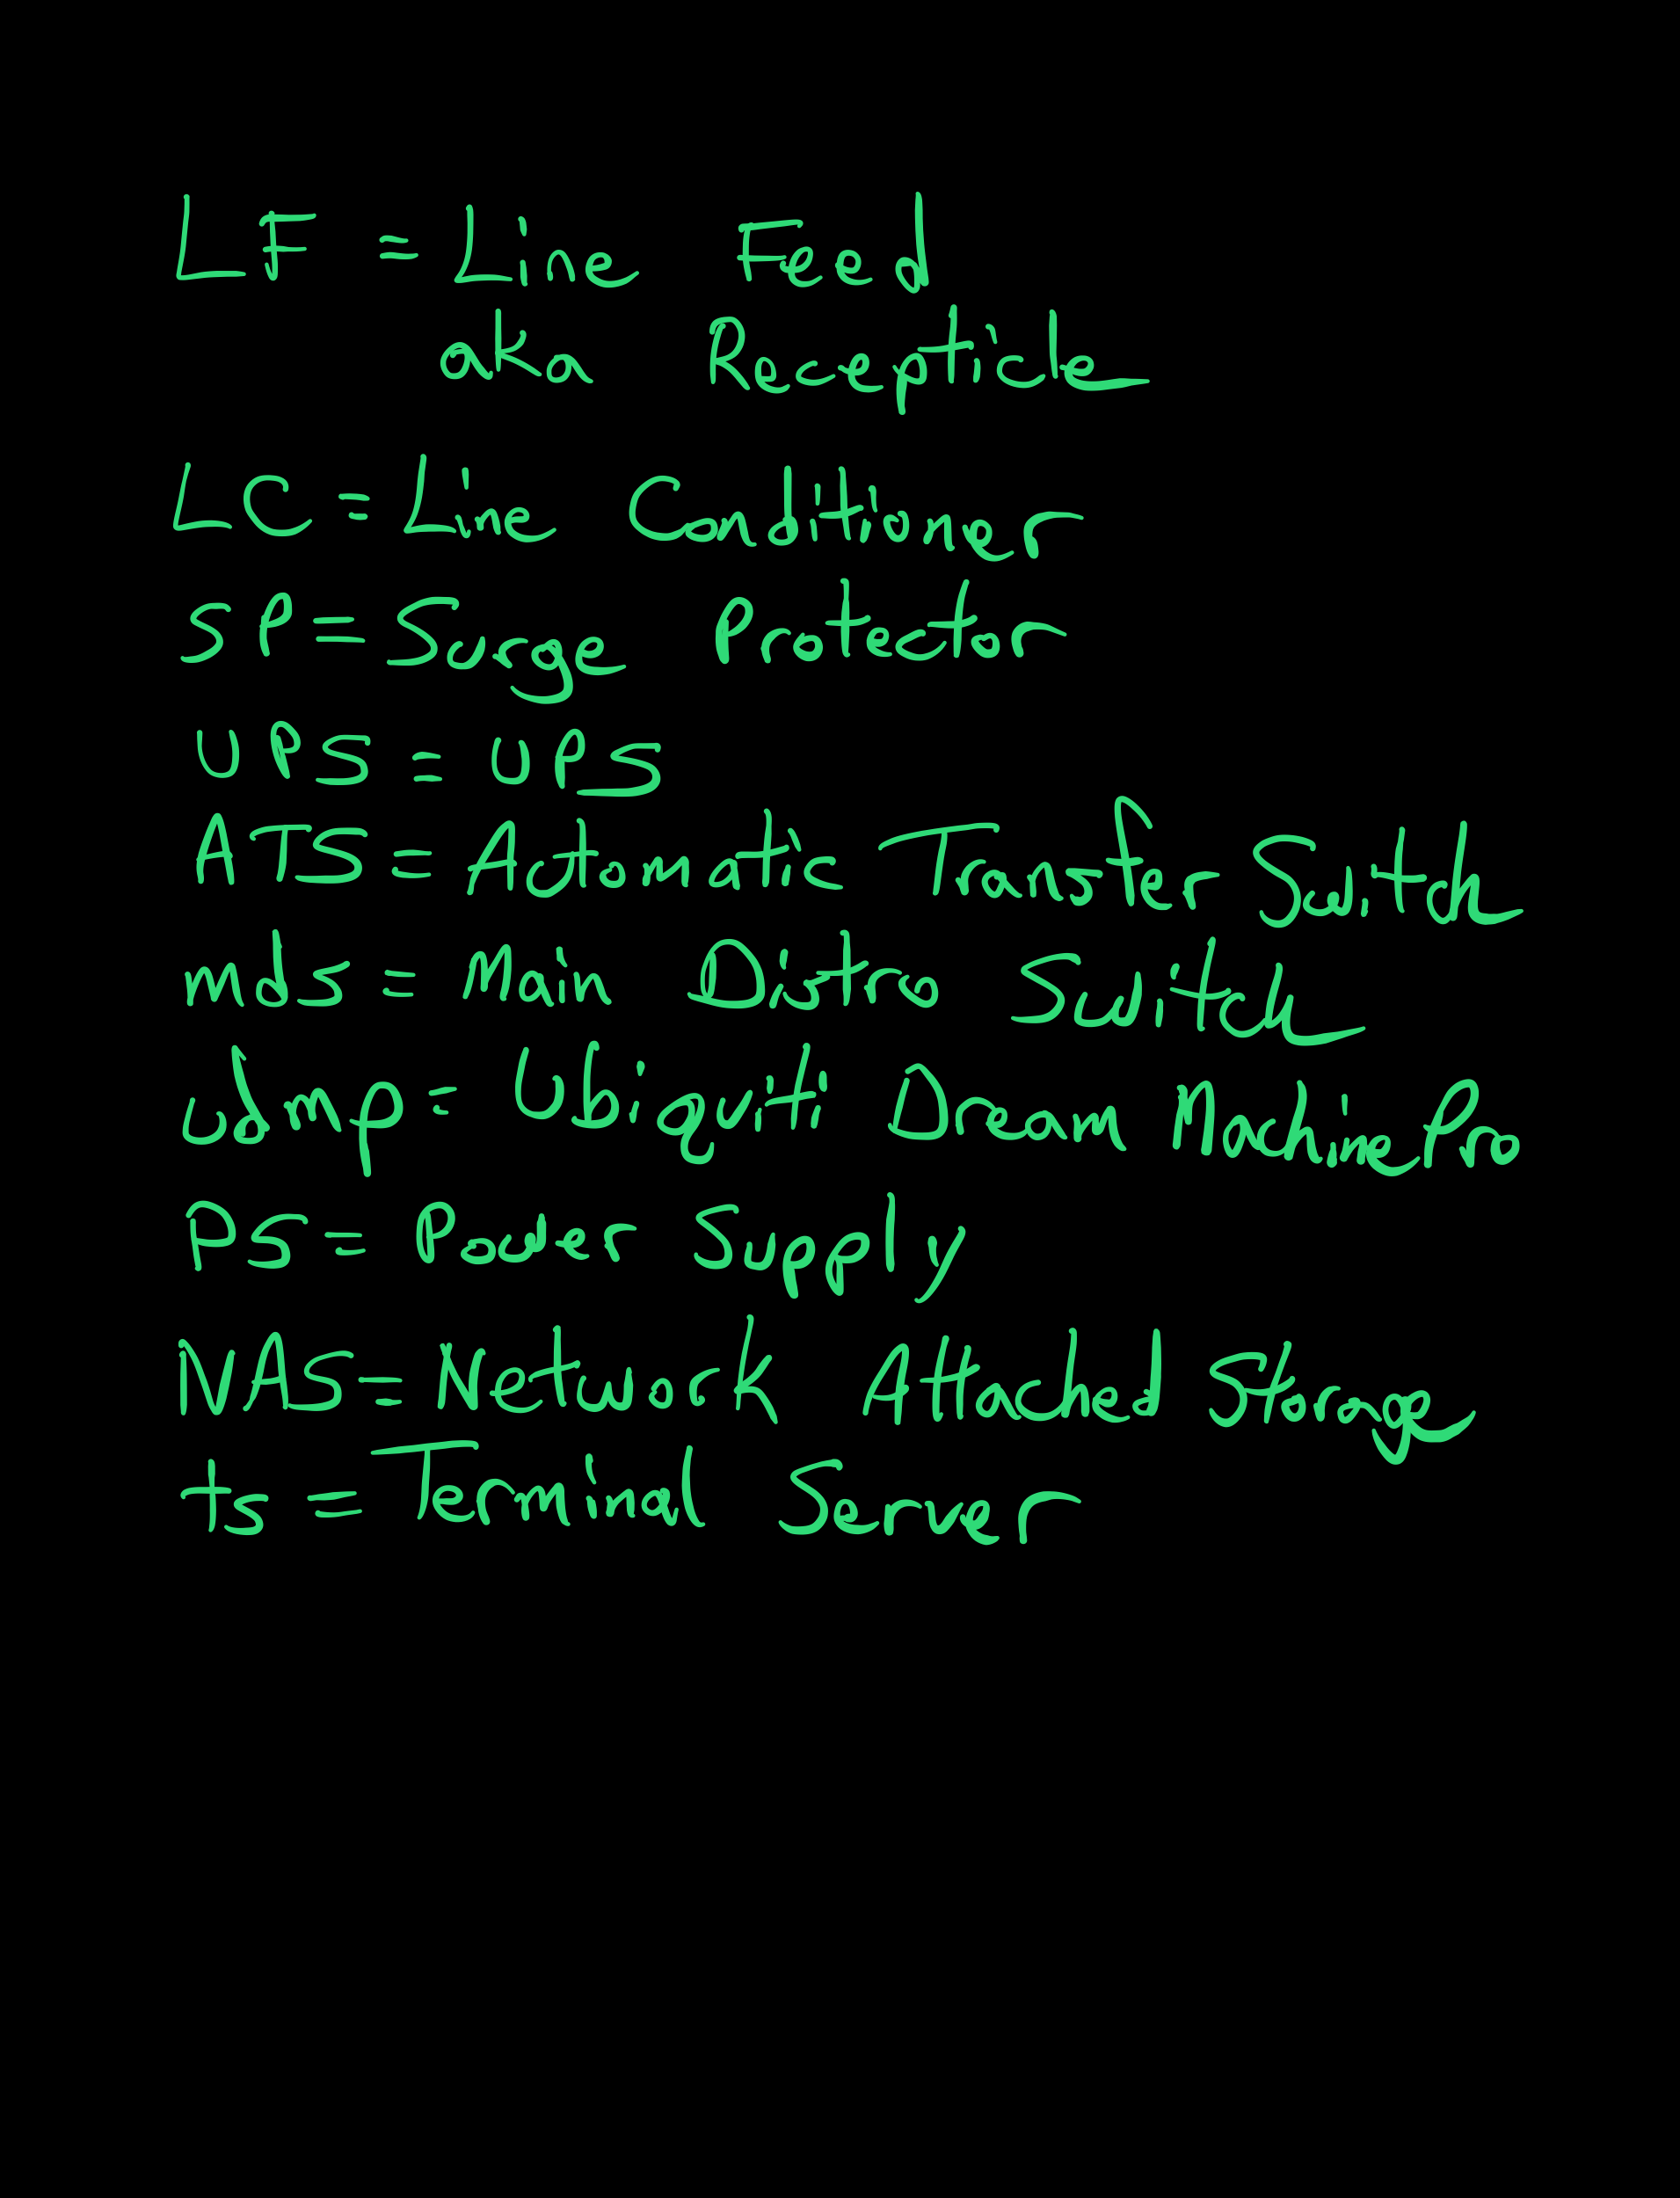 LF = Line Feed
aka Recepticle
LC = Line Conditioner
SP = Surge Protector
UPS = UPS
ATS = Automatic Transfer Switch
mds = Main Distro Switch
udmp = Ubiquiti Dream Machine Pro
PS = Power Supply
NAS = Network Attached Storage
ts = Terminal Server